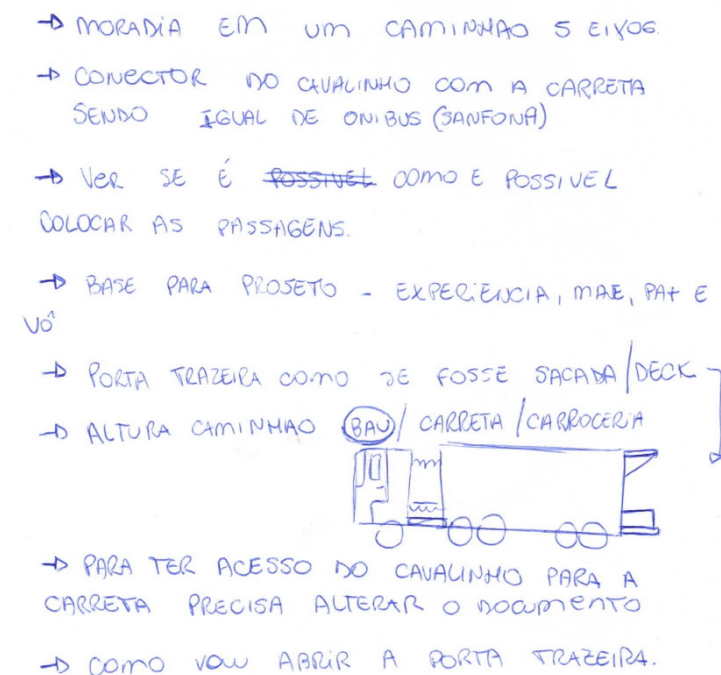 → MORADIA EM UM CAMINHAO 5 EIXOS.
→ CONECTOR DO CAVALINHO COM A CARRETA
SENDO IGUAL DE ONIBUS (SANFONA)
→ VER SE É POSSIVEL COMO E POSSIVEL
COLOCAR AS PASSAGENS.
→ BASE PARA PROJETO - EXPERIENCIA, MAE, PAI E
VÔ
→ PORTA TRAZEIRA COMO SE FOSSE SACADA/DECK
→ ALTURA CAMINHAO BAU / CARRETA / CARROCERIA
→ PARA TER ACESSO DO CAVALINHO PARA A
CARRETA PRECISA ALTERAR O DOCUMENTO
→ COMO VOU ABRIR A PORTA TRAZEIRA.